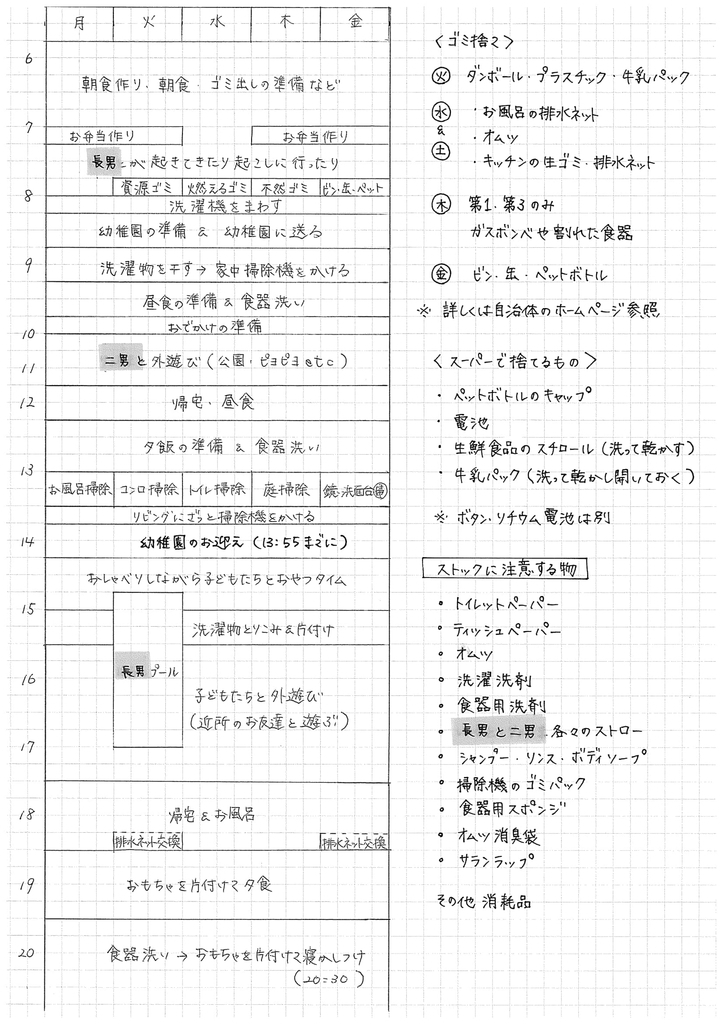 月 火 水 木 金
6
朝食作り、朝食・ゴミ出しの準備など
7
お弁当作り お弁当作り
長男が起きてきたり起こしに行ったり
資源ゴミ 燃えるゴミ 不然ゴミ ビン・缶・ペット
8
洗濯機をまわす
幼稚園の準備 & 幼稚園に送る
9
洗濯物を干す→家中掃除機をかける
昼食の準備 & 食器洗い
おでかけの準備
10
二男と外遊び(公園・ピヨピヨetc)
11
帰宅・昼食
12
夕飯の準備 & 食器洗い
13
お風呂掃除 コンロ掃除 トイレ掃除 庭掃除 鏡・洗面台
リビングにざっと掃除機をかける
14
幼稚園のお迎え(13:55までに)
おしゃべりしながら子どもたちとおやつタイム
15
洗濯物とりこみ&片付け
長男プール
16
子どもたちと外遊び
(近所のお友達と遊ぶ)
17
18
帰宅 & お風呂
排水ネット交換 排水ネット交換
19
おもちゃを片付けて夕食
20
食器洗い→おもちゃを片付けて寝かしつけ
(20:30)
<ゴミ捨て>
火 ダンボール・プラスチック・牛乳パック
水 ・お風呂の排水ネット
& ・オムツ
土 ・キッチンの生ゴミ・排水ネット
木 第1・第3のみ
ガスボンベや割れた食器
金 ビン・缶・ペットボトル
※ 詳しくは自治体のホームページ参照
<スーパーで捨てるもの>
・ペットボトルのキャップ
・電池
・生鮮食品のスチロール(洗って乾かす)
・牛乳パック(洗って乾かし開いておく)
※ ボタン・リチウム電池は別
ストックに注意する物
・トイレットペーパー
・ティッシュペーパー
・オムツ
・洗濯洗剤
・食器用洗剤
・長男と二男各々のストロー
・シャンプー・リンス・ボディソープ
・掃除機のゴミパック
・食器用スポンジ
・オムツ消臭袋
・サランラップ
その他 消耗品